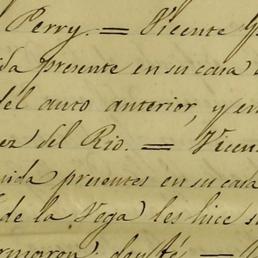 Perry. = Vicente
da presente en su casa
del auto anterior, y en
ez del Rio. = Vicen
uida presentes en su casa
de la Vega) les hice s
firmaron: doy fé. =